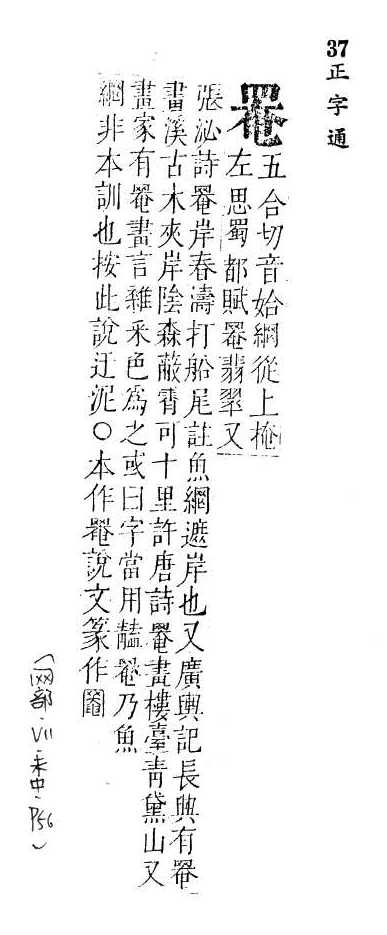 37正字通
罨
五合切音始網從上掩
左思蜀都賦罨翡翠又
張泌詩罨岸春濤打船尾註魚網遮岸也又廣輿記長興有罨
畫溪古木夾岸陰森蔽霄可十里許唐詩罨畫樓臺青黛山又
畫家有罨畫言雜采色為之或曰字當用罨乃魚
網非本訓也按此說迂泥○本作罨說文篆作
(网部·VII·未中·P56)